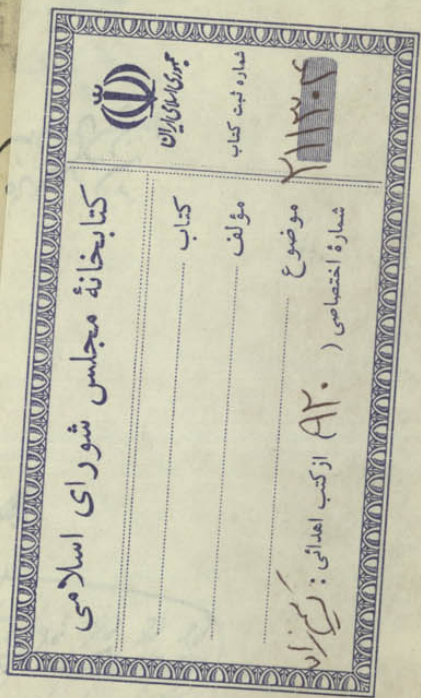 جمهوری اسلامی ایران
شماره ثبت کتاب
۲۱۱۳۰۲
کتابخانهٔ مجلس شورای اسلامی
کتاب
مؤلف
موضوع
شمارهٔ اختصاصی ( ۸۲۰ ) از کتب اهدائی :